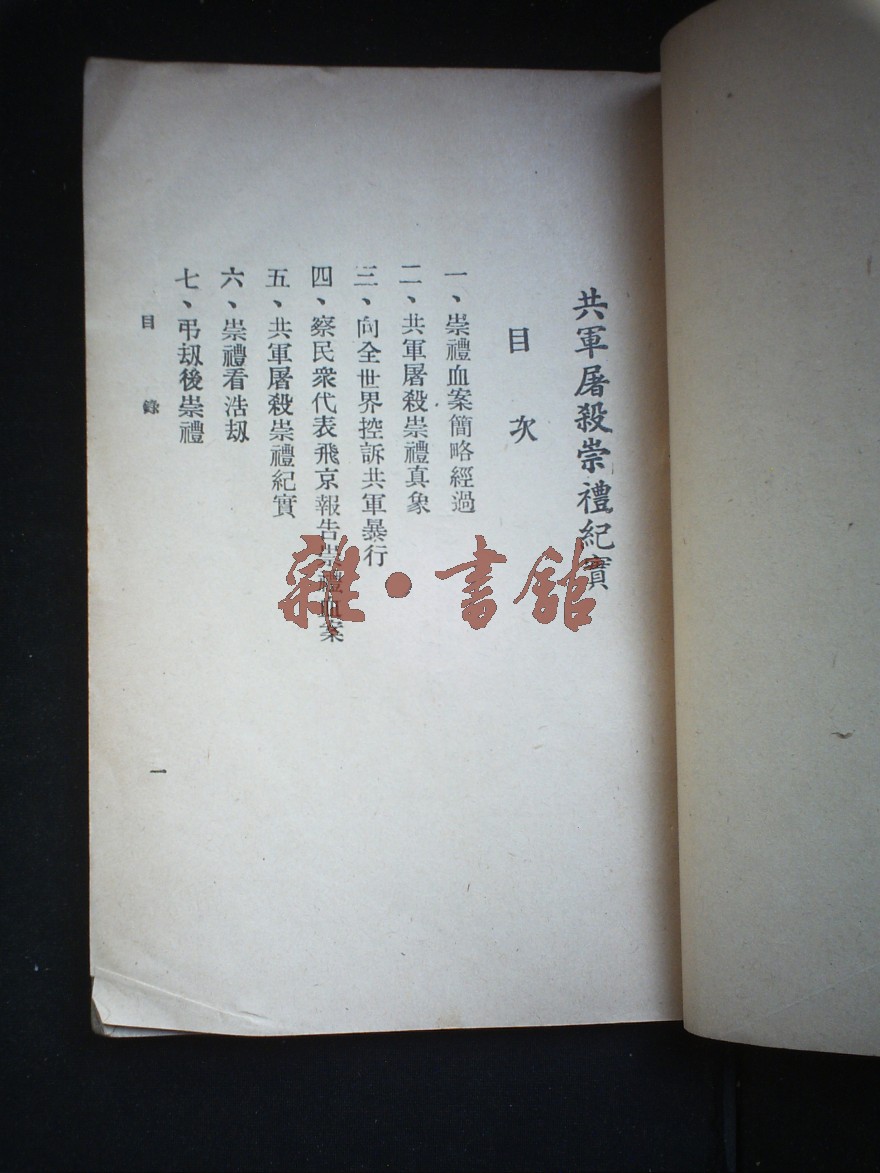 共軍屠殺崇禮紀實
目次
一、崇禮血案簡略經過
二、共軍屠殺崇禮真象
三、向全世界控訴共軍暴行
四、察民眾代表飛京報告崇禮血案
五、共軍屠殺崇禮紀實
六、崇禮看浩刼
七、弔刼後崇禮
目錄
一
雜·書館